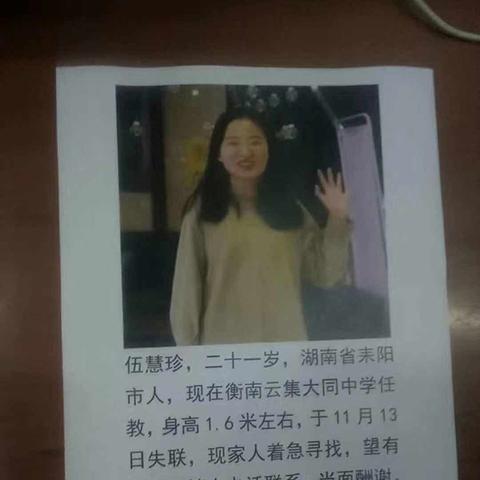 伍慧珍，二十一岁，湖南省耒阳
市人，现在衡南云集大同中学任
教，身高1.6米左右，于11月13
日失联，现家人着急寻找，望有
电话联系，当面酬谢。